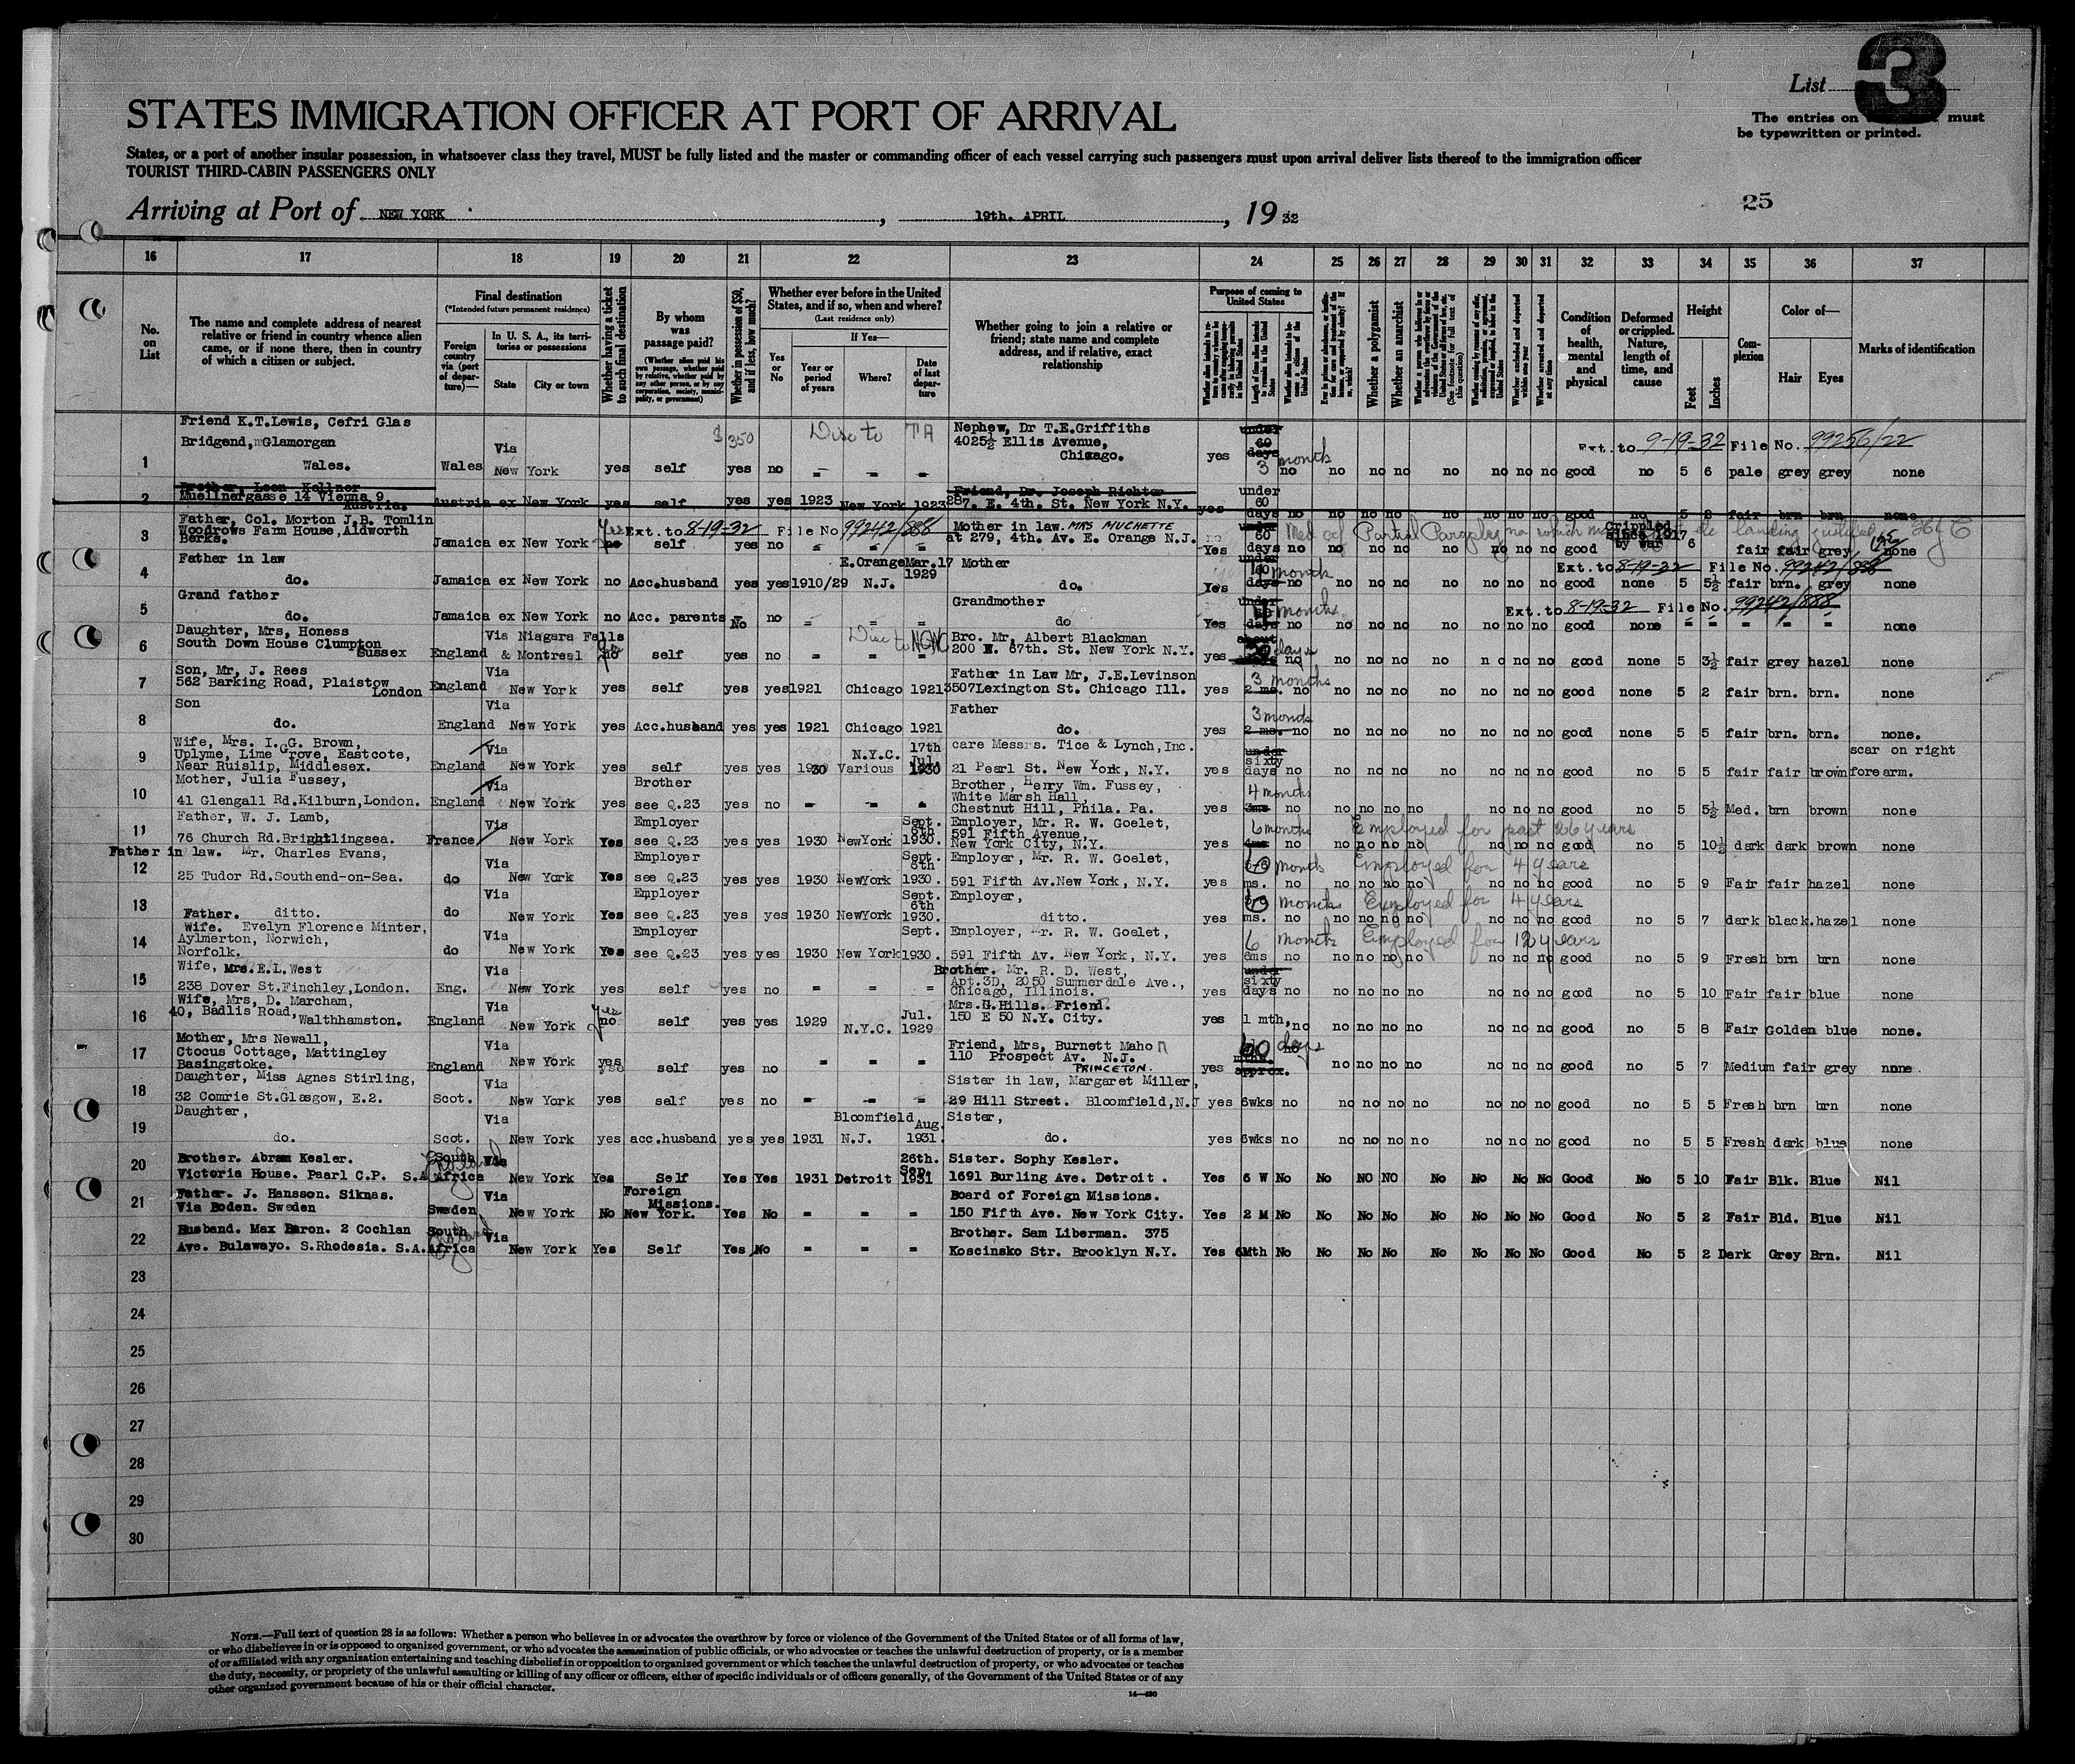 List 3
The entries on must
be typewritten or printed.
STATES IMMIGRATION OFFICER AT PORT OF ARRIVAL
States, or a port of another insular possession, in whatsoever class they travel, MUST be fully listed and the master or commanding officer of each vessel carrying such passengers must upon arrival deliver lists thereof to the immigration officer
TOURIST THIRD-CABIN PASSENGERS ONLY
25
Arriving at Port of NEW YORK, 19th. APRIL, 19 32
16 17 18 19 20 21 22 23 24 25 26 27 28 29 30 31 32 33 34 35 36 37
No. on List
The name and complete address of nearest relative or friend in country whence alien came, or if none there, then in country of which a citizen or subject.
Final destination
(*Intended future permanent residence)
Foreign country via (port of departure)—
In U. S. A., its territories or possessions
State City or town
Whether having a ticket to such final destination
By whom was passage paid?
(Whether alien paid his own passage, whether paid by relative, whether paid by any other person, or by any corporation, society, municipality, or government)
Whether in possession of $50, and if less, how much?
Whether ever before in the United States, and if so, when and where?
(Last residence only)
Yes or No
If Yes—
Year or period of years
Where?
Date of last departure
Whether going to join a relative or friend; state name and complete address, and if relative, exact relationship
Purpose of coming to United States
Whether a polygamist
Whether an anarchist
Condition of health, mental and physical
Deformed or crippled. Nature, length of time, and cause
Height
Feet Inches
Complexion
Color of—
Hair Eyes
Marks of identification
Friend K.T.Lewis, Cefri Glas $350 Disc to TA Nephew, Dr T.E.Griffiths under
Bridgend, Glamorgan Via 4025½ Ellis Avenue, 60 days Ext. to 9-19-32 File No. 99256/22
1 Wales. Wales New York yes self yes no - - - Chicago. yes 3 month no no no no no no no no good no 5 6 pale grey grey none
Brother, Leon Kellner Friend, Dr. Joseph Richter under
2 Muellnergasse 14 Vienna 9. Austria. Austria ex New York yes self yes yes 1923 New York 1923 287. E. 4th. St. New York N.Y. yes 60 days no no no no no no no no good no 5 8 fair brn brn none
Father, Col. Morton J.B. Tomlin Yes Ext. to 8-19-32 File No 99242/888 Mother in law. MRS MUCHETTE under Crippled
3 Woodrows Farm House, Aldworth Berks. Jamaica ex New York no self yes no = = = at 279, 4th. Av. E. Orange N.J. Yes 60 days no no no no no no no no good since 1917 by war 6 fair fair grey none
Father in law E.Orange Mar.17 Mother under months Ext. to 8-19-32 File No. 99242/888
4 do. Jamaica ex New York no Acc.husband yes yes 1910/29 N.J. 1929 do. Yes days no no no no no no no no good none 5 5½ fair brn. grey none
Grand father Grandmother under months Ext. to 8-19-32 File No. 99242/888
5 do. Jamaica ex New York no Acc. parents No no = = = do Yes days no no no no no no no no good none = = = = = none
Daughter, Mrs, Honess Via Niagara Falls Disc to NQNC Bro. Mr, Albert Blackman about
6 South Down House Clumpton Sussex England & Montreal no self yes no = = = 200 E. 67th. St. New York N.Y. yes days no no no no no no no no good none 5 3½ fair grey hazel none
Son, Mr, J. Rees Via Father in Law Mr, J.E.Levinson 3 months
7 562 Barking Road, Plaistow London England New York yes self yes yes 1921 Chicago 1921 3507 Lexington St. Chicago Ill. yes 2 ms. no no no no no no no no good none 5 2 fair brn. brn. none
Son Via Father 3 months
8 do. England New York yes Acc.husband yes yes 1921 Chicago 1921 do. yes 2 ms. no no no no no no no no good none 5 5 fair brn. brn. none.
Wife, Mrs. I.G. Brown, Via 17th care Messrs. Tice & Lynch, Inc. under scar on right
9 Uplyme, Lime Grove, Eastcote, Near Ruislip, Middlesex. England New York yes self yes yes 1930 N.Y.C. Various Jul. 1930 21 Pearl St. New York, N.Y. yes sixty days no no no no no no no no good no 5 5 fair fair brown forearm.
Mother, Julia Fussey, Via Brother Brother, Henry Wm. Fussey, 4 months
10 41 Glengall Rd.Kilburn, London. England New York yes see Q.23 yes no - - - White Marsh Hall, Chestnut Hill, Phila. Pa. yes 3ms no no no no no no no no good no 5 5½ Med. brn brown none
Father, W. J. Lamb, Via Employer Sept. 6th Employer, Mr. R. W. Goelet, 6 months Employed for past 26 years
11 76 Church Rd.Brightlingsea. France New York Yes see Q.23 yes yes 1930 NewYork 1930. 591 Fifth Avenue, New York City, N.Y. yes no no no no no no no no good no 5 10½ dark dark brown none
Father in law. Mr. Charles Evans, Via Employer Sept. 6th Employer, Mr. R. W. Goelet, 6 month Employed for 4 years
12 25 Tudor Rd.Southend-on-Sea. do New York Yes see Q.23 yes yes 1930 NewYork 1930. 591 Fifth Av.New York, N.Y. yes ms. no no no no no no no no good no 5 9 Fair fair hazel none
Via Employer Sept. 6th Employer, 6 months Employed for 4 years
13 Father. ditto. do New York Yes see Q.23 yes yes 1930 NewYork 1930. ditto. yes ms. no no no no no no no no good no 5 7 dark black.hazel none
Wife. Evelyn Florence Minter, Via Employer Sept. Employer, Mr. R. W. Goelet, 6 months Employed for 12 years
14 Aylmerton, Norwich, Norfolk. do New York Yes see Q.23 yes yes 1930 New York 1930. 591 Fifth Av. New York, N.Y. yes 6ms no no no no no no no no good no 5 9 Fresh brn brn none
Wife, Mrs.E.L.West Via Brother. Mr. R. D. West, under
15 238 Dover St.Finchley, London. Eng. New York yes self yes no = = = Apt.3D, 2050 Summerdale Ave., Chicago, Illinois. yes sixty days no no no no no no no no good no 5 10 Fair fair blue none
Wife, Mrs, D. Marcham, Via yes Jul. Mrs.G.Hills. Friend.
16 40, Badlis Road, Walthhamston. England New York no self yes yes 1929 N.Y.C. 1929 150 E 50 N.Y. City. yes 1 mth, no no no no no no no no good no 5 8 Fair Golden blue none.
Mother, Mrs Newall, Via Friend, Mrs, Burnett Mahon 60 days
17 Ctocus Cottage, Mattingley Basingstoke. England New York yes self yes no = = = 110 Prospect Av. N.J. PRINCETON. yes mths. approx. no no no no no no no good no 5 7 Medium fair grey none.
Daughter, Miss Agnes Stirling, Via Sister in law, Margaret Miller,
18 32 Comrie St.Glasgow, E.2. Scot. New York yes self yes no - = = 29 Hill Street. Bloomfield, N.J yes 6wks no no no no no no no no good no 5 5 Fresh brn brn none
Daughter, Via Bloomfield Aug. Sister,
19 do. Scot. New York yes acc.husband yes yes 1931 N.J. 1931. do. yes 6wks no no no no no no no no good no 5 5 Fresh dark blue none
Brother. Abram Kesler. South Via 26th. Sep. Sister. Sophy Kesler.
20 Victoria House. Paarl C.P. S.A Africa New York Yes Self Yes Yes 1931 Detroit 1931 1691 Burling Ave. Detroit. Yes 6 W No No NO NO No No No No Good No 5 10 Fair Blk. Blue Nil
Father. J. Hansson. Siknas. Via Foreign Missions. Board of Foreign Missions.
21 Via Boden. Sweden Sweden New York No New York. Yes No = = = 150 Fifth Ave. New York City. Yes 2 M No No No No No No No No Good No 5 2 Fair Bld. Blue Nil
Husband. Max Baron. 2 Cochlan South Via Brother. Sam Liberman. 375
22 Ave. Bulawayo. S.Rhodesia. S.A. Africa New York Yes Self Yes No = = = Koscinsko Str. Brooklyn N.Y. Yes 6Mth No No No No No No No No Good No 5 2 Dark Grey Brn. Nil
23
24
25
26
27
28
29
30
NOTE.—Full text of question 28 is as follows: Whether a person who believes in or advocates the overthrow by force or violence of the Government of the United States or of all forms of law,
or who disbelieves in or is opposed to organized government, or who advocates the assassination of public officials, or who advocates or teaches the unlawful destruction of property, or is a member
of or affiliated with any organization entertaining and teaching disbelief in or opposition to organized government or which teaches the unlawful destruction of property, or who advocates or teaches
the duty, necessity, or propriety of the unlawful assaulting or killing of any officer or officers, either of specific individuals or of officers generally, of the Government of the United States or of any
other organized government because of his or their official character.
14—430